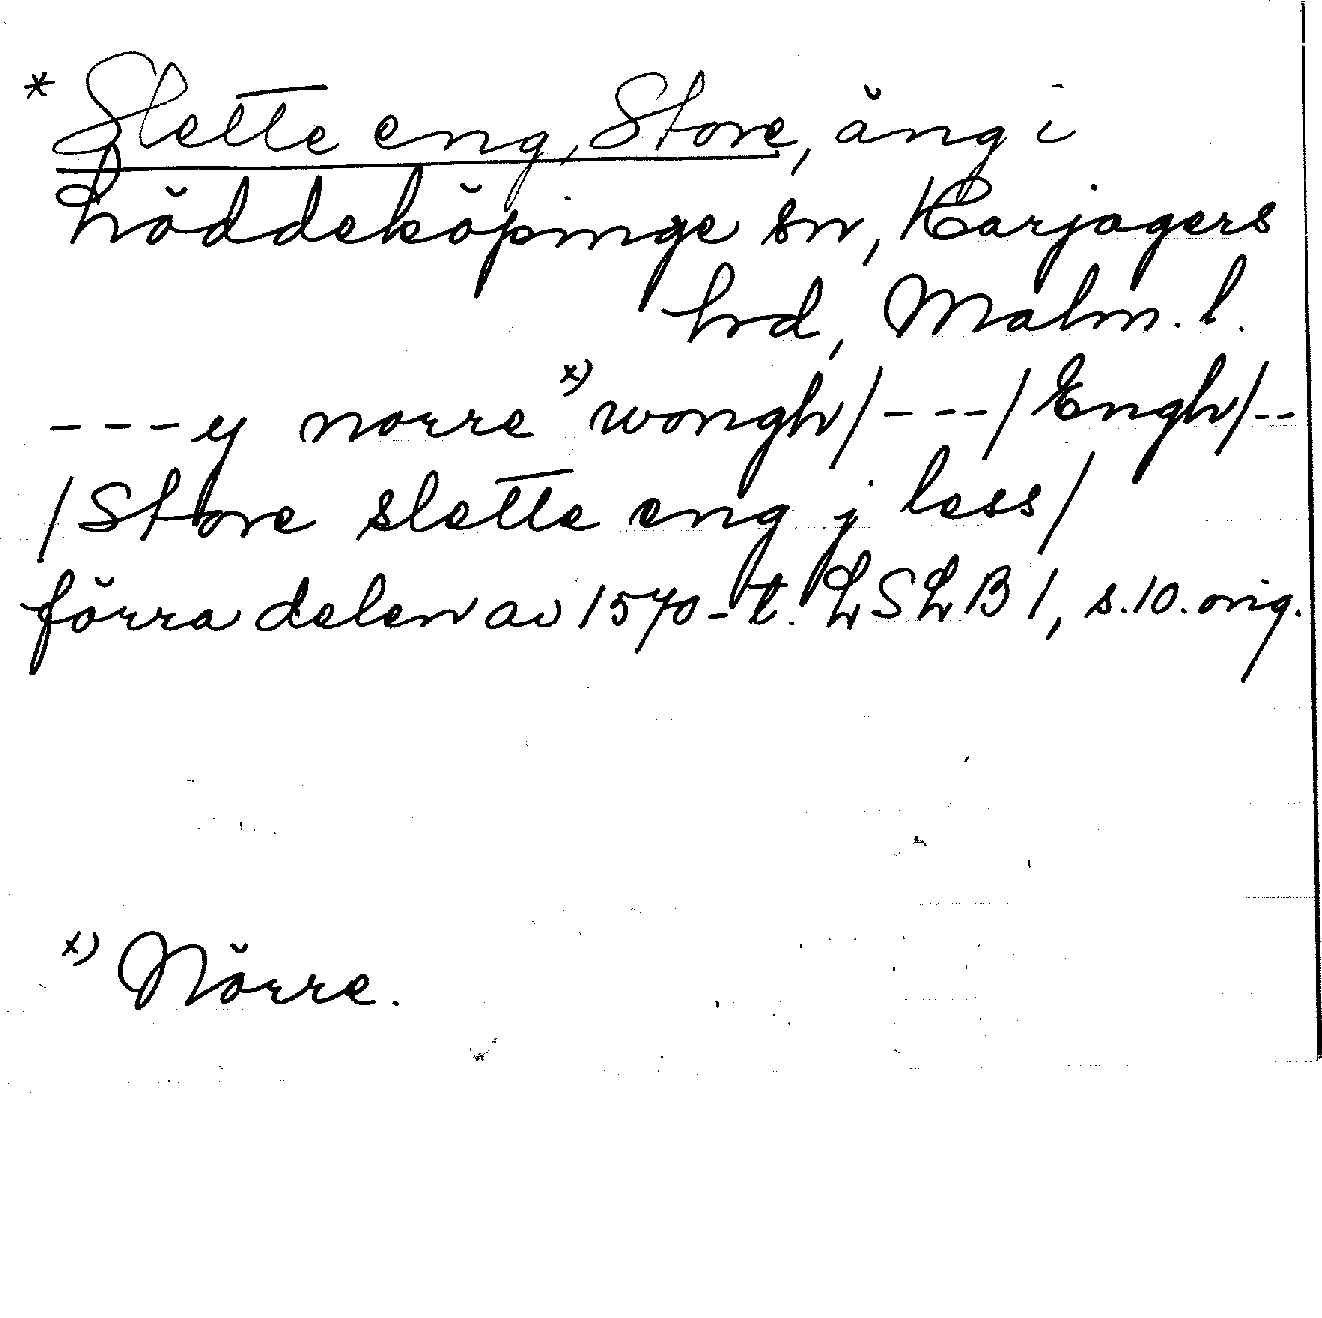 * Slette eng, Store, äng i
Löddeköpinge sn, Harjagers
hrd, Malm. l.
---y norre x) wongh/---/Engh/--
/Store slette eng j less/
förra delen av 1570-t. LSLB 1, s.10. orig.
x) Nörre.